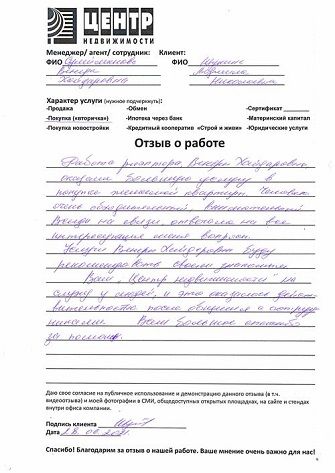 ЦЕНТР
НЕДВИЖИМОСТИ
Менеджер/ агент/ сотрудник: Клиент:
ФИО ФИО
Венера
Хайдаровна Николаевич
Характер услуги (нужное подчеркнуть):
-Продажа -Обмен -Сертификат
-Покупка («вторичка») -Ипотека через банк -Материнский капитал
-Покупка новостройки -Кредитный кооператив «Строй и живи» -Юридические услуги
Отзыв о работе
Работа риэлтора, Венеры Хайдаровны
оказали большую услугу в
покупке квартиры. Человек
очень
Всегда на связи, отвечала на все
интересующие меня вопросы.
Услуги Венеры Хайдаровны буду
рекомендовать своим знакомым.
Ваш "Центр недвижимости" на
службе у людей, и это оказалось дейст-
вительностью после общения с сотруд-
никами. Вам большое спасибо
за помощь.
Даю свое согласие на публичное использование и демонстрацию данного отзыва (в т.ч.
видеоотзыва) и моей фотографии в СМИ, общедоступных открытых площадках, на сайте и стендах
внутри офиса компании.
Подпись клиента
Дата
Спасибо! Благодарим за отзыв о нашей работе. Ваше мнение очень важно для нас!